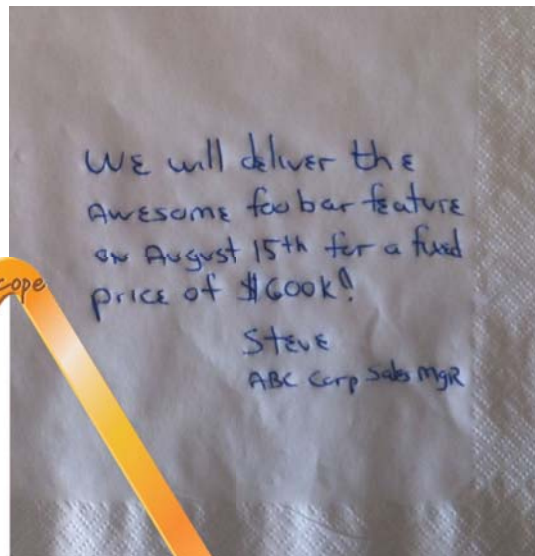 WE will deliver the
AWESOME foobar feature
on August 15th for a fixed
price of $600k!
Steve
ABC Corp Sales MgR
cope